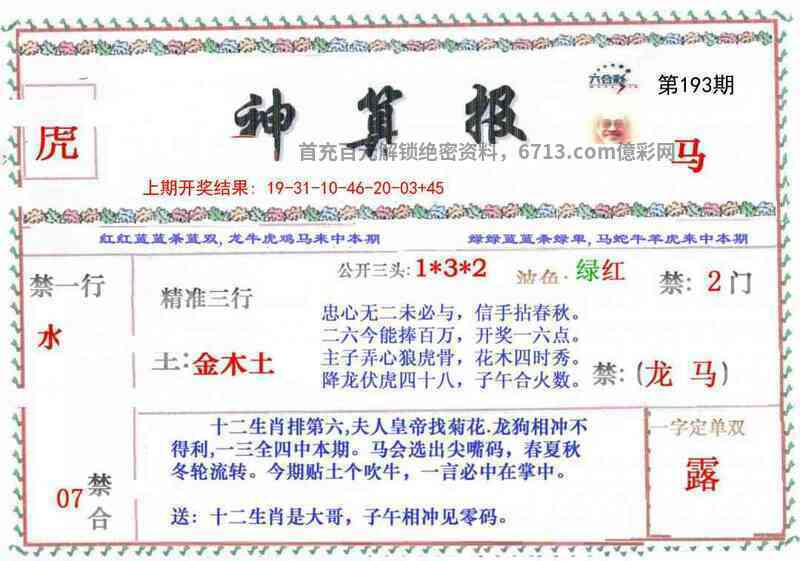 六合彩
第193期
神算报
虎
首充百元解锁绝密资料，6713.com億彩网
马
上期开奖结果：19-31-10-46-20-03+45
红红蓝蓝条蓝双，龙牛虎鸡马来中本期
绿绿蓝蓝条绿单，马蛇牛羊虎来中本期
禁一行
水
精准三行
土：金木土
公开三头：1*3*2
波色：绿红
禁：2门
忠心无二未必与，信手拈春秋。
二六今能捧百万，开奖一六点。
主子弄心狼虎骨，花木四时秀。
降龙伏虎四十八，子午合火数。
禁：(龙 马)
07
禁合
十二生肖排第六,夫人皇帝找菊花.龙狗相冲不
得利，一三全四中本期。马会选出尖嘴码，春夏秋
冬轮流转。今期贴土个吹牛，一言必中在掌中。
送：十二生肖是大哥，子午相冲见零码。
一字定单双
露